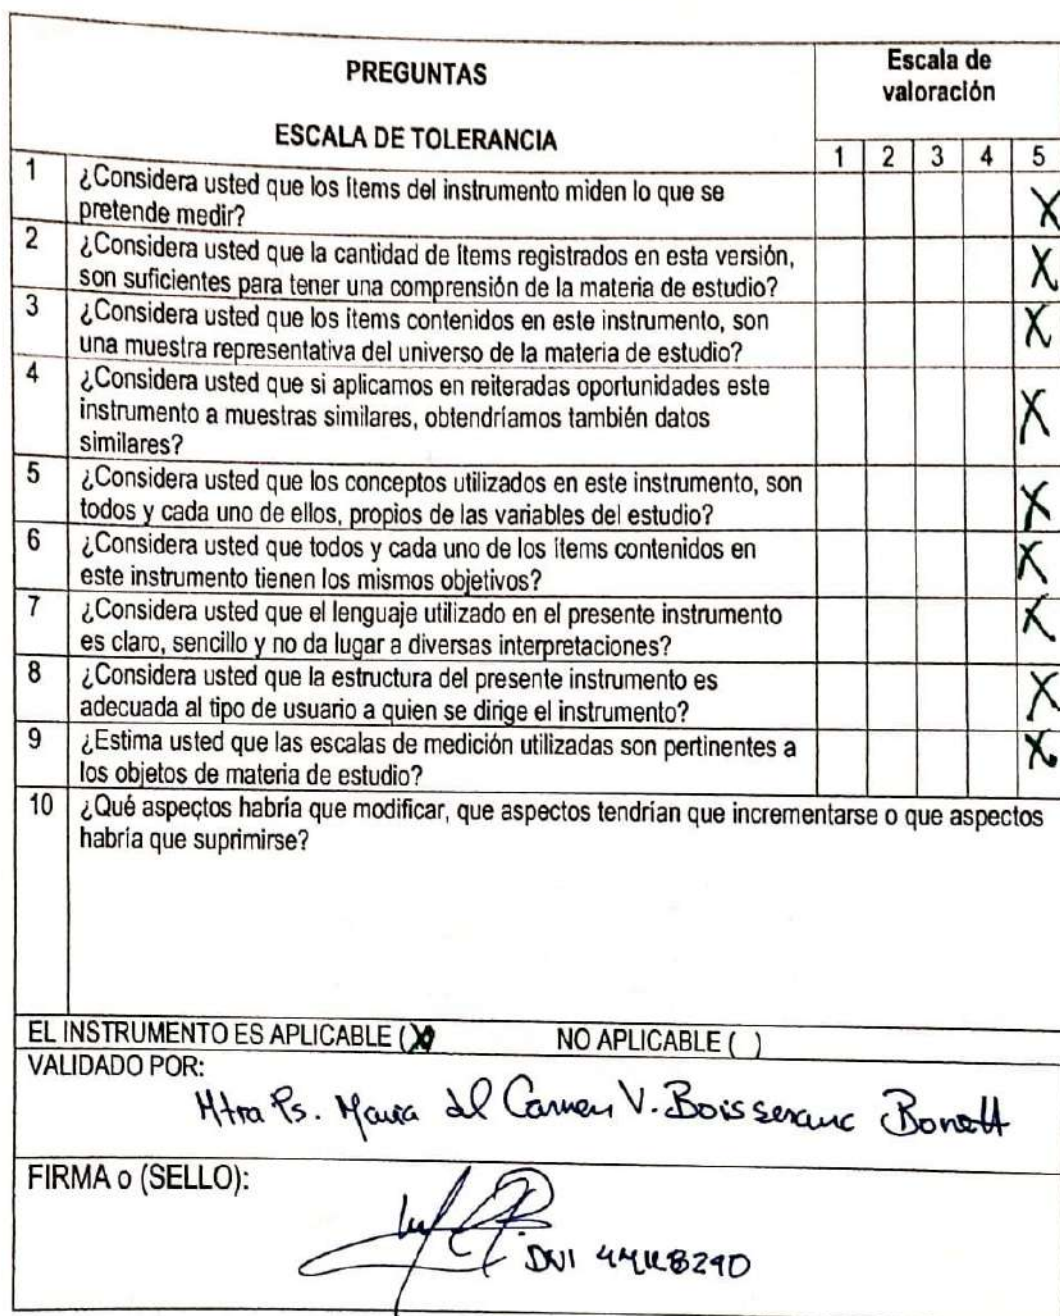 PREGUNTAS
Escala de
valoración
ESCALA DE TOLERANCIA
1 2 3 4 5
1 ¿Considera usted que los ítems del instrumento miden lo que se
pretende medir? X
2 ¿Considera usted que la cantidad de ítems registrados en esta versión,
son suficientes para tener una comprensión de la materia de estudio? X
3 ¿Considera usted que los ítems contenidos en este instrumento, son
una muestra representativa del universo de la materia de estudio? X
4 ¿Considera usted que si aplicamos en reiteradas oportunidades este
instrumento a muestras similares, obtendríamos también datos
similares? X
5 ¿Considera usted que los conceptos utilizados en este instrumento, son
todos y cada uno de ellos, propios de las variables del estudio? X
6 ¿Considera usted que todos y cada uno de los ítems contenidos en
este instrumento tienen los mismos objetivos? X
7 ¿Considera usted que el lenguaje utilizado en el presente instrumento
es claro, sencillo y no da lugar a diversas interpretaciones? X
8 ¿Considera usted que la estructura del presente instrumento es
adecuada al tipo de usuario a quien se dirige el instrumento? X
9 ¿Estima usted que las escalas de medición utilizadas son pertinentes a
los objetos de materia de estudio? X
10 ¿Qué aspectos habría que modificar, que aspectos tendrían que incrementarse o que aspectos
habría que suprimirse?
EL INSTRUMENTO ES APLICABLE (X) NO APLICABLE ( )
VALIDADO POR:
Mtra Ps. Maria del Carmen V.
FIRMA o (SELLO):
DNI